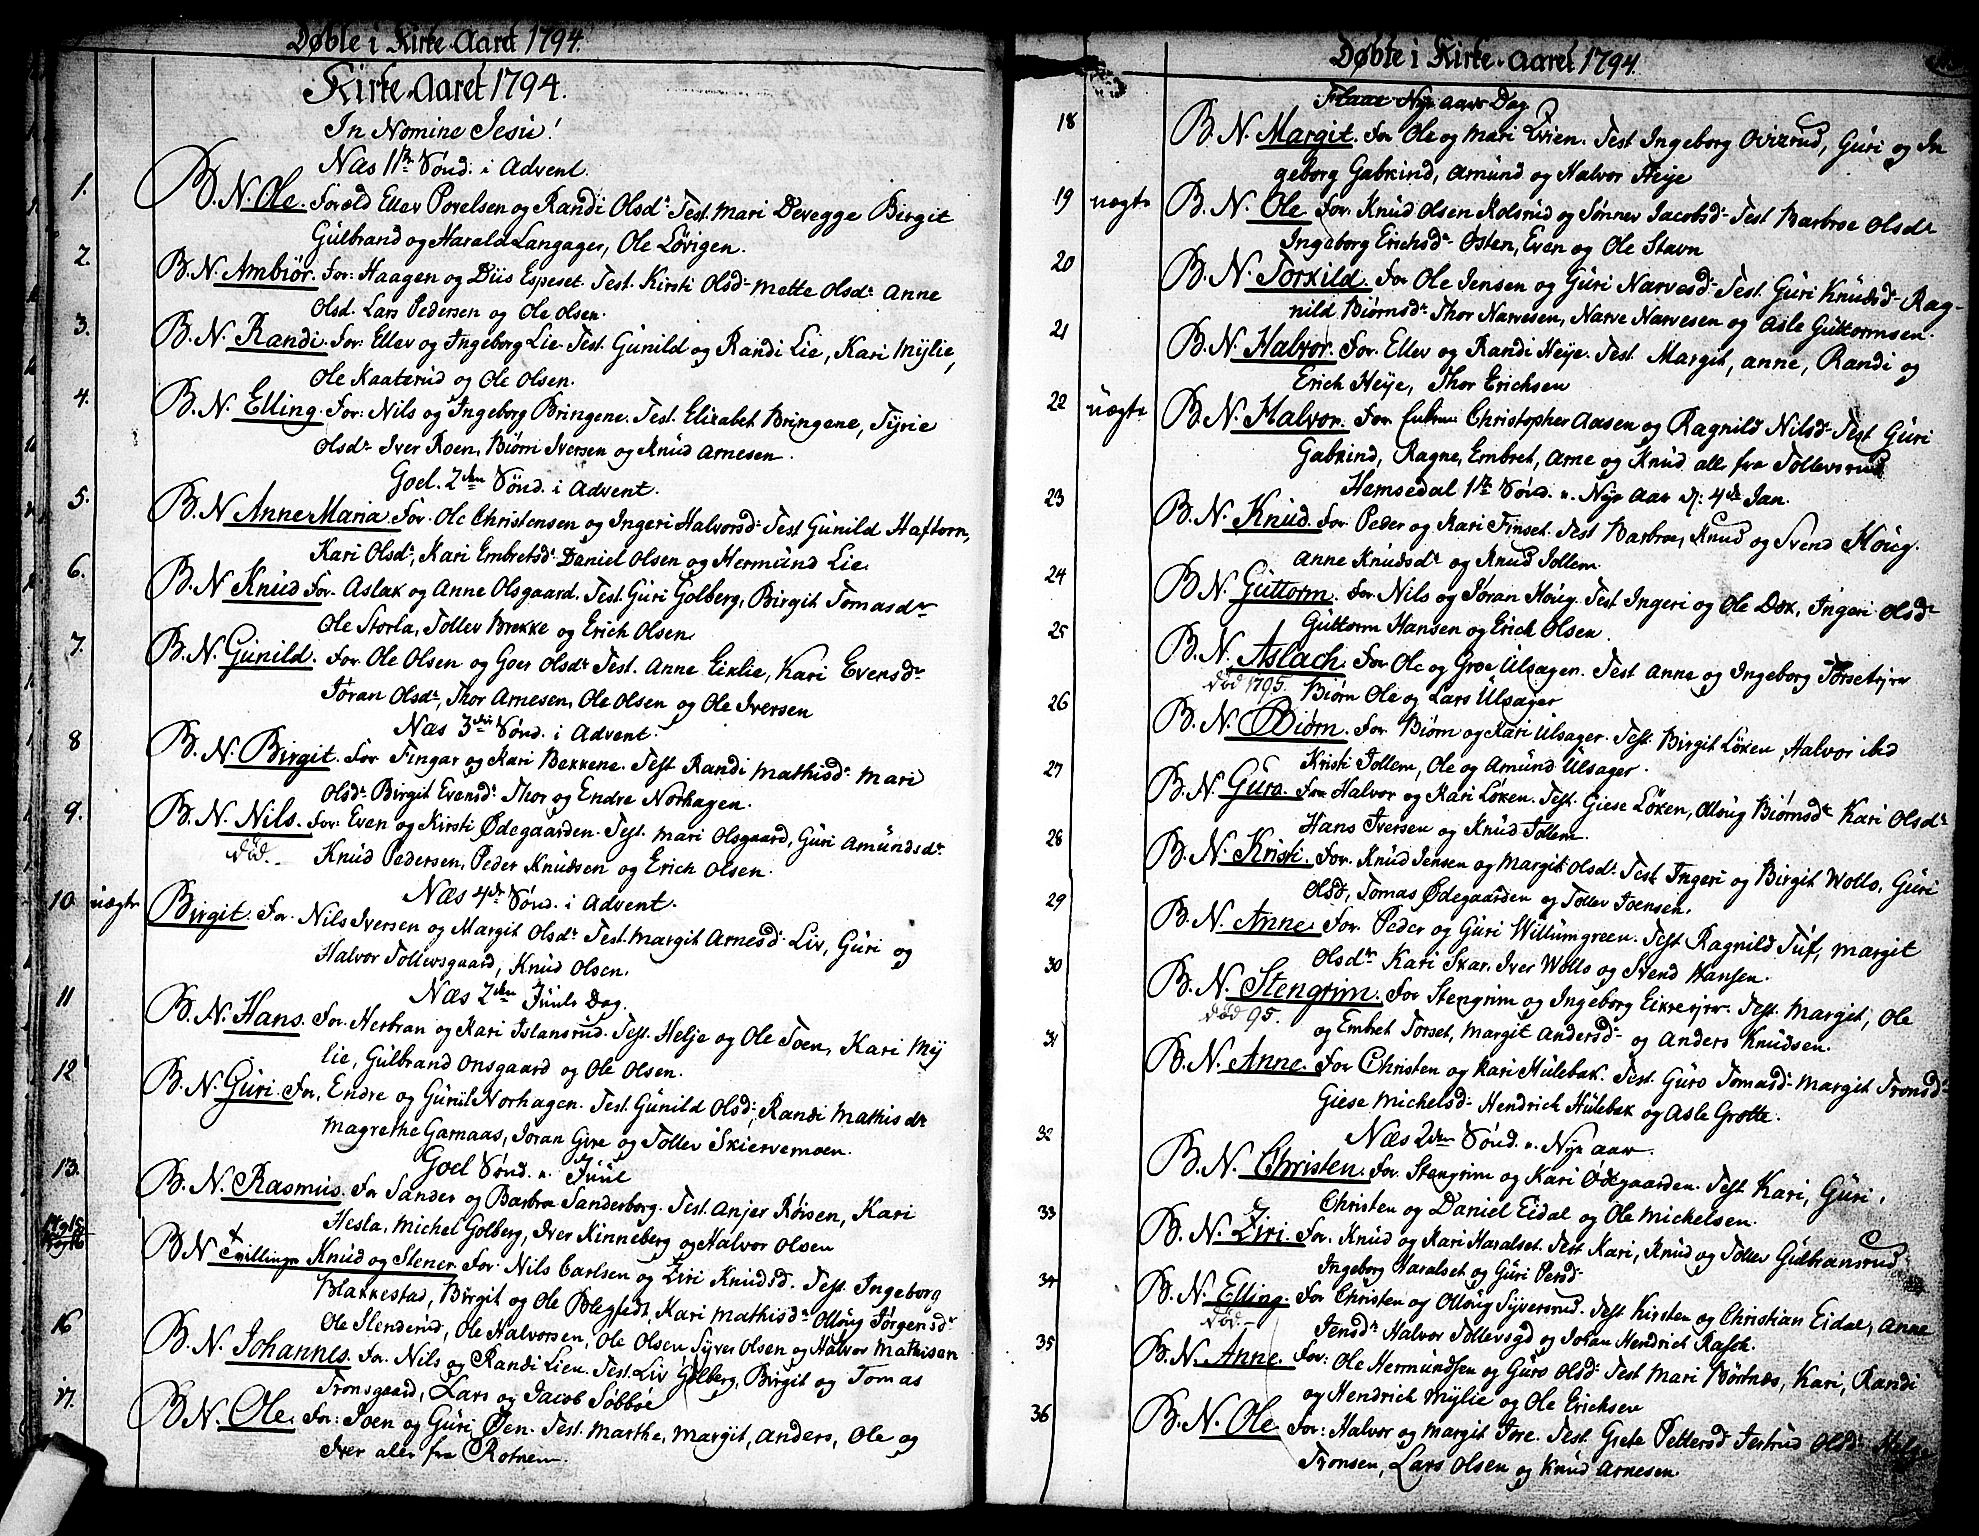 Døbte i Kirke-Aaret 1794.
Kirke-Aaret 1794.
In Nomine Jesu!
Næs 1te Sønd. i Advent.
1. B. N. Ole. Foræld Ellev Povelsen og Randi Olsdr Test. Mari Devegge Birgit
Gulbrand og Harald Langager, Ole Lørigen.
2. B. N. Ambiør. For: Haagen og Diis Espeset. Test. Kirsti Olsdr Mette Olsdr Anne
Olsd. Lars Pedersen og Ole Olsen.
3. B. N. Randi. For: Ellev og Ingeborg Lie. Test. Gunild og Randi Lie, Kari Mylie,
Ole Kaaterud og Ole Olsen.
4. B. N. Elling. For: Nils og Ingeborg Bringene. Test. Elizabet Bringene, Tyrie
Olsdr Iver Roen, Biørn Iversen og Knud Arnesen.
Goel. 2den Sønd. i Advent.
5. B. N Anne Maria. For. Ole Christensen og Ingeri Halvorsdr Test Gunild Haftorn,
Kari Olsdr, Kari Embretsdr Daniel Olsen og Hermund Lie.
6. B. N Knud For. Aslak og Anne Olsgaard. Test. Guri Golberg, Birgit Tomasdr
Ole Storla, Tollev Brekke og Erich Olsen.
7. B. N. Gunild. For. Ole Olsen og Goer Olsdr Test. Anne Eiklie, Kari Evensdr
Jøran Olsdr, Thor Arnesen, Ole Olsen og Ole Iversen
Næs 3die Sønd. i Advent.
8 B. N. Birgit. For Fingar og Kari Bekkene. Test Randi Mathisdr Mari
Olsdr Birgit Evensdr Thor og Endre Norhagen.
9. B. N. Nils. For: Even og Kirsti Ødegaarden. Test. Mari Olsgaard, Guri Amundsdr
død. Knud Pedersen, Peder Knudsen og Erich Olsen.
Næs 4de Sønd. i Advent.
10 uægte Birgit. For. Nils Iversen og Margit Olsdr Test. Margit Arnesd Liv, Guri og
Halvor Tollevsgaard, Knud Olsen.
Næs 2den Juuls Dag.
11 B. N. Hans. For. Herbran og Kari Islansrud. Test. Helje og Ole Toen, Kari My
lie, Gulbrand Onsgaard og Ole Olsen.
12 B. N. Guri. For. Endre og Gunil Norhagen. Test. Gunild Olsd, Randi Mathisdr
Magrethe Garnaas, Joran Gire og Tollev Skiervemoen.
Goel Sønd. n. Juul
13. B. N. Rasmus. For Sander og Barbra Sanderborg. Test. Anjer Rørsen, Kari
Hesla, Michel Golberg, Iver Kinneberg og Halvor Olsen
B N Tvillinge Knud og Stener. For. Nils Carlsen og Ziri Knudsd. Test. Ingeborg
Blakkestad, Birgit og Ole Blegsedt, Kari Mathisdr Olloug Jørgensdr
Ole Slenderud, Ole Halvorsen, Ole Olsen Syver Olsen og Halvor Mathisen
16 B. N. Johannes. For. Nils og Randi Lien. Test. Liv Golberg, Birgit og Tomas
Tronsgaard, Lars og Jacob Sobboe
17. B. N. Ole. For: Joen og Guri Øen. Test. Marthe, Margit, Anders, Ole og
Iver aler fra Rotnem.
Døbte i Kirke-Aaret 1794.
Nye Aars Dag
18 B. N. Margit. For Ole og Mari Evien. Test Ingeborg Ovizrud, Guri og In
geborg Gabkind, Amund og Halvor Heye
19 uægte B. N Ole For. Knud Olsen Rolsrud og Sønnev Jacobsdr Test Barbroe Olsdr
Ingeborg Erichsdr Østen, Even og Ole Stavn
20 B. N. Torkild. For Ole Jensen og Guri Narvesdr Test. Guri Knudsdr Rag-
nild Biørnsdr Thor Narvesen, Narve Narvesen og Asle Guttormsen.
21 B. N. Halvor. For. Ellev og Randi Heye. Test. Margit, Anne, Randi og
Erich Heye, Thor Erichsen
22 uægte B. N. Halvor. For Christopher Aasen og Ragnild Nilsdr Test Guri
Gabkind, Ragne, Embret, Arne og Knud alle fra Tollevsrud
Hemsedal 1te Sønd. n. Nye Aar d: 4de Jan.
23 B. N. Knud. For Peder og Kari Finset. Test Barbroe, Knud og Svend Houg.
Anne Knudsdr og Knud Jollem.
24 B. N. Guttorm. For Nils og Jøran Houg. Test Ingeri og Ole Dæk, Ingeri Olsdr
Guttorm Hansen og Erich Olsen.
25 B. N. Aslach. For Ole og Groe Ulsager. Test Anne og Ingeborg Torsetejer
død 1795. Biørn Ole og Lars Ulsager
26 B. N. Biørn. For Biørn og Kari Ulsager. Test. Birgit Løken, Halvor ibd
Kristi Jollem, Ole og Amund Ulsager.
27 B. N. Guro. For Halvor og Kari Løken. Test. Giese Løken, Olloug Biørnsdr Kari Olsdr
Hans Iversen og Knud Jollem.
28 B. N. Kristi. For. Knud Jensen og Margit Olsdr Test Ingeri og Birgit Wollo, Guri
Olsd, Tomas Ødegaarden og Tollev Joensen.
29 B. N. Anne. For Peder og Guri Willumgreen. Test Ragnild Tuf, Margit
Olsdr Kari Skar, Iver Wollo og Svend Hansen.
30 B. N. Stengrim. For Stengrim og Ingeborg Eikreejer. Test. Margit, Ole
død 95. og Embret Torset, Margit Andersdr og Anders Knudsen.
31 B. N. Anne. For Christen og Kari Hulebak. Test. Guro Tomasdr Margit Tronsdr
Giese Michelsdr Hendrich Hulebak og Asle Grotte.
Næs 2den Sønd. n. Nye aar.
32 B. N. Christen. For. Stengrim og Kari Ødegaarden. Test Kari, Guri,
Christen og Daniel Eidal og Ole Michelsen.
33 B. N. Ziri. For. Knud og Kari Haralset. Test Kari, Knud og Tollev Gulbransrud
Ingeborg Haralset og Guri Persdr
34 B. N. Elling. For Christen og Olloug Syversrud. Test Kirsten og Christian Eidal, Anne
død.- Jensdr Halvor Tollevsgd og Johan Hendrich Rasch.
35 B. N. Anne. For: Ole Hermundsen og Guro Olsdr Test Mari Børtnæs, Kari, Randi
og Hendrich Mylie og Ole Erichsen
36 B. N. Ole For: Halvor og Margit Jore. Test. Grete Pettersd Jertrud Olsdr
Tronsen, Lars Olsen og Knud Arnesen.